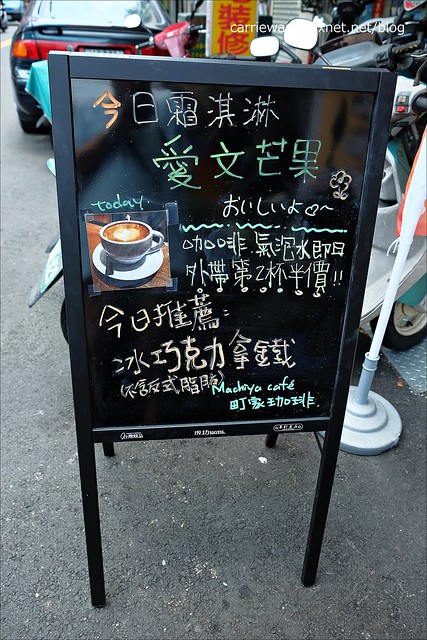 裝修
carriewa
xnet.net/blog
今日霜淇淋
愛文芒果
today
おいしいよ
咖啡 氣泡水即日
外帶第2杯半價!!
今日推薦:
冰巧克力拿鐵
(不含反式脂肪)
Machiya café
町家珈琲.
成功